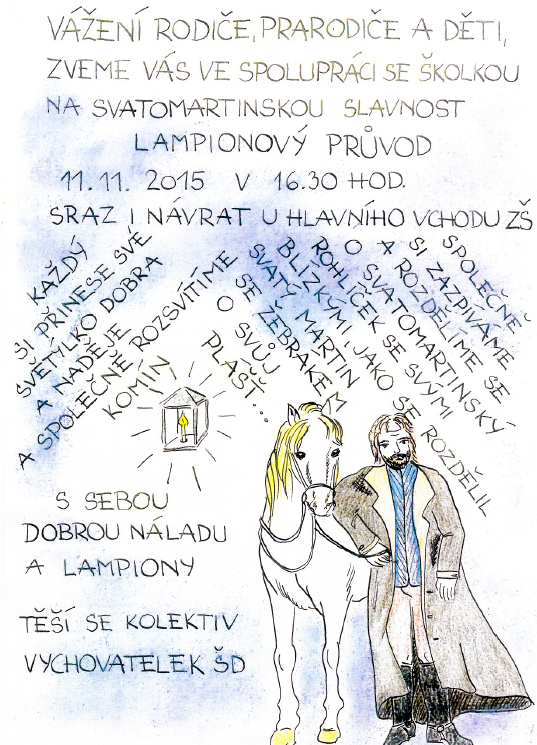 VÁŽENÍ RODIČE, PRARODIČE A DĚTI,
ZVEME VÁS VE SPOLUPRÁCI SE ŠKOLKOU
NA SVATOMARTINSKOU SLAVNOST
LAMPIONOVÝ PRŮVOD
11.11. 2015 V 16.30 HOD.
SRAZ I NÁVRAT U HLAVNÍHO VCHODU ZŠ
KAŽDÝ
SI PŘINESE SVÉ
SVĚTÝLKO DOBRA
A NADĚJE
A SPOLEČNĚ ROZSVÍTÍME
KOMÍN
SPOLEČNĚ
SI ZAZPÍVÁME
A ROZDĚLÍME SE
O SVATOMARTINSKÝ
ROHLÍČEK SE SVÝMI
BLÍZKÝMI JAKO SE ROZDĚLIL
SVATÝ MARTIN
SE ŽEBRÁKEM
O SVŮJ
PLÁŠŤ...
S SEBOU
DOBROU NÁLADU
A LAMPIONY
TĚŠÍ SE KOLEKTIV
VYCHOVATELEK ŠD